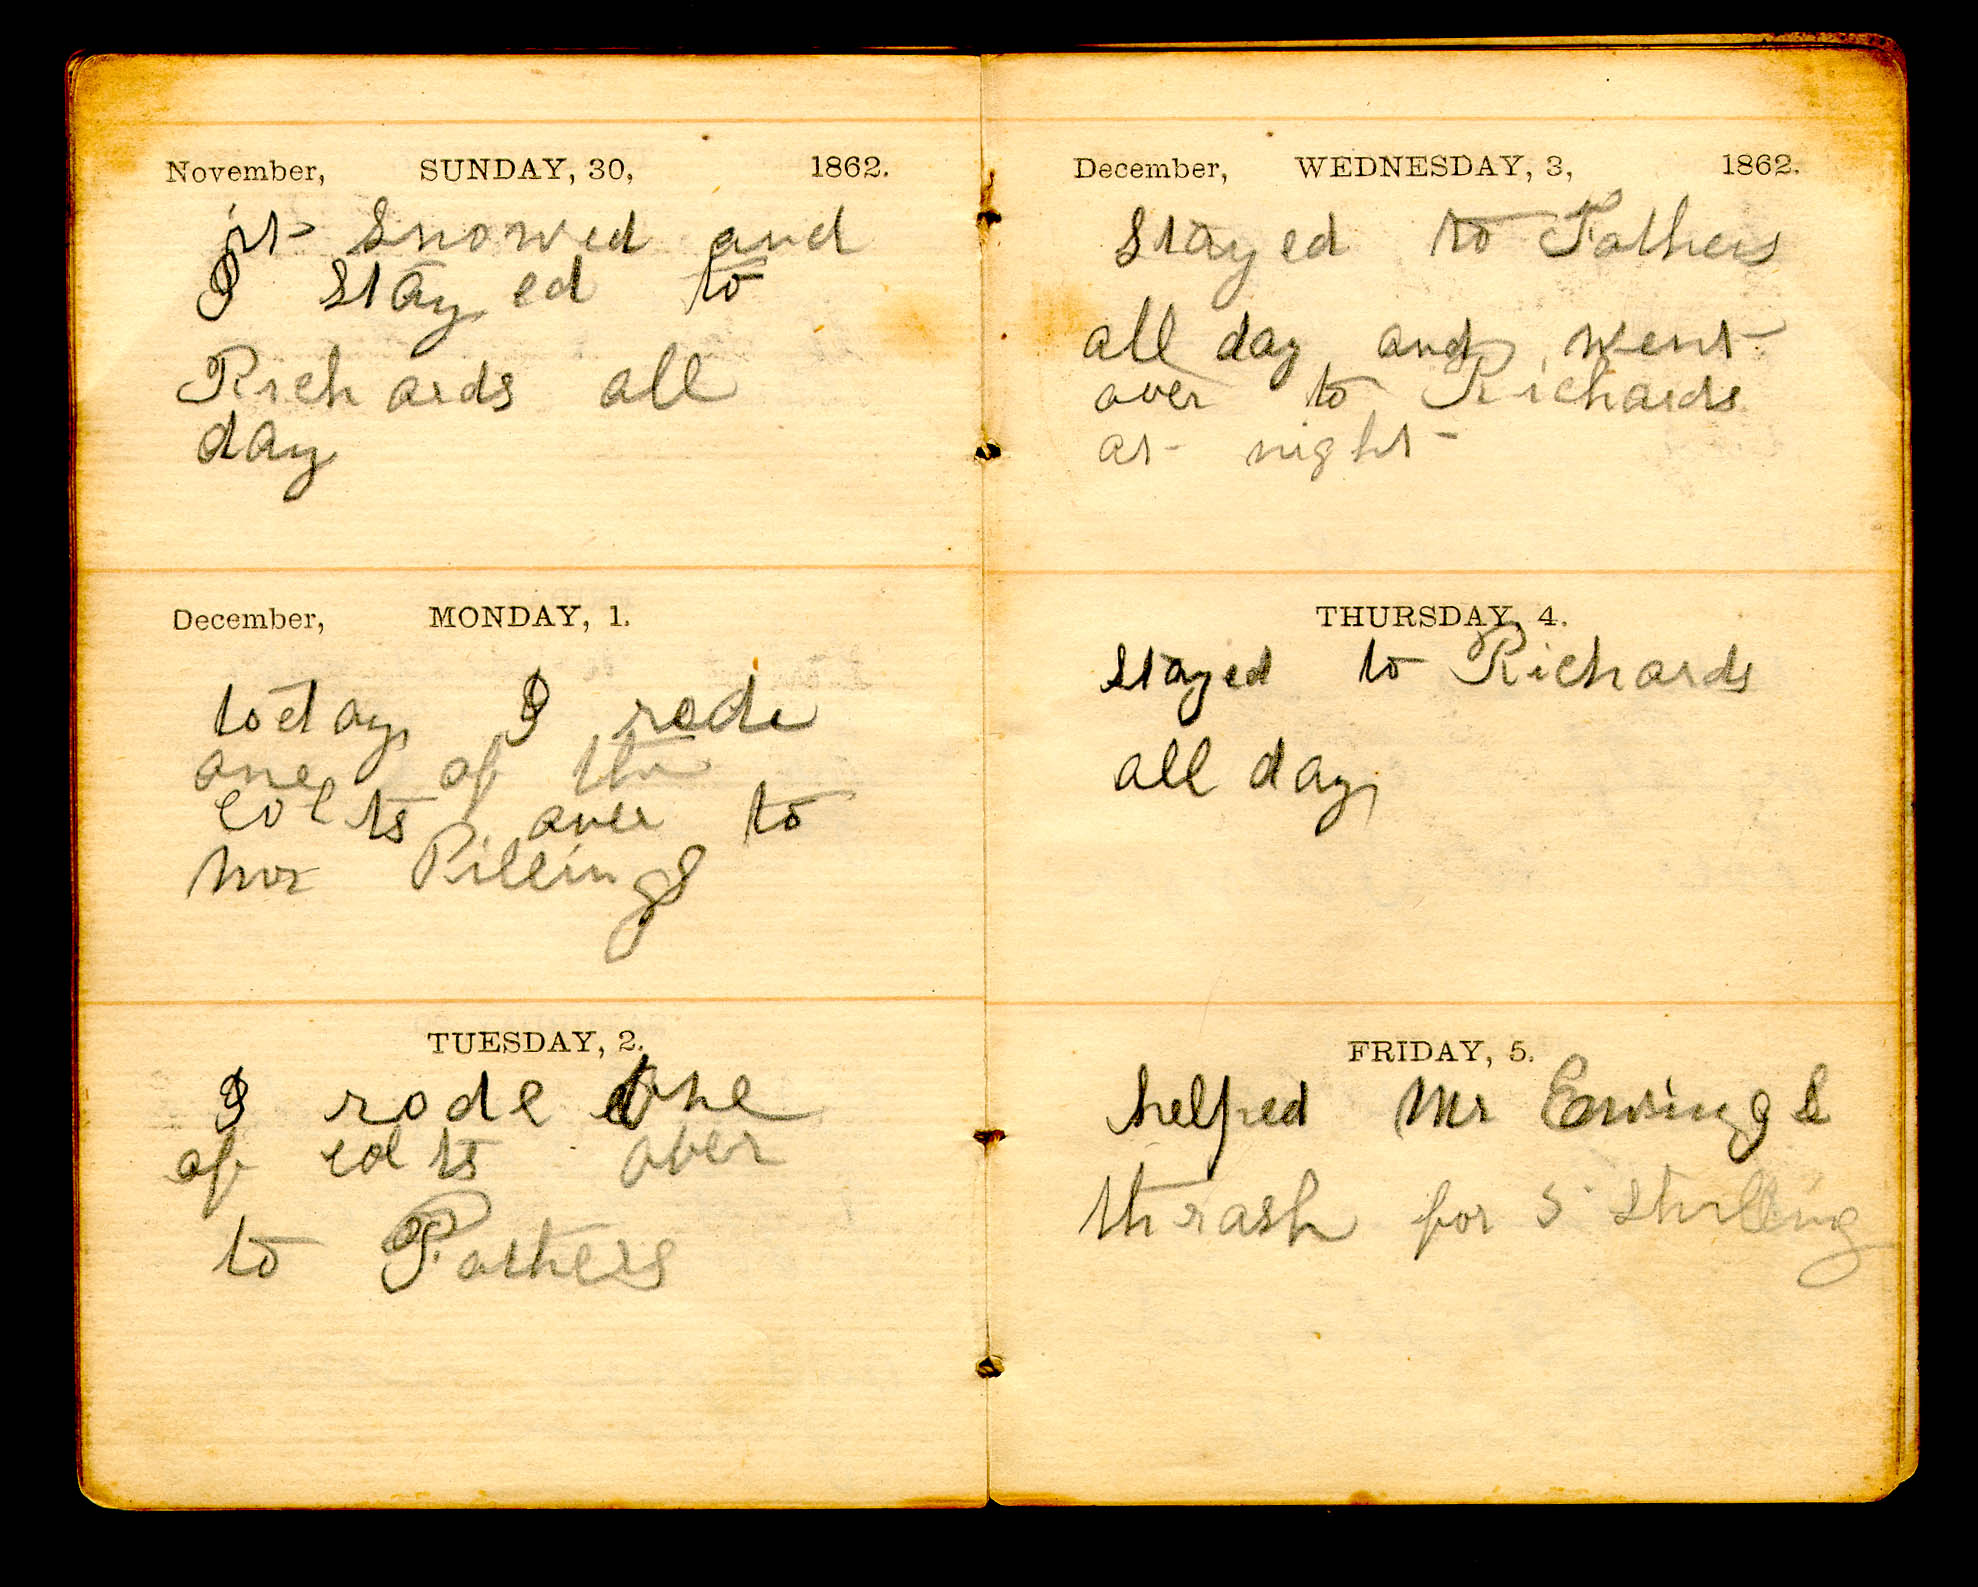 November, SUNDAY, 30, 1862.
it Snowed and
I stayed to
Richards all
day
December, MONDAY, 1.
today I rode
one of the
colts over to
Mr Pillings
TUESDAY, 2.
I rode one
of colts over
to Fathers
December, WEDNESDAY, 3, 1862.
Stayed to Fathers
all day and went
over to Richards
at night
THURSDAY, 4.
stayed to Richards
all day
FRIDAY, 5.
helped Mr
thrash for 5 shilling